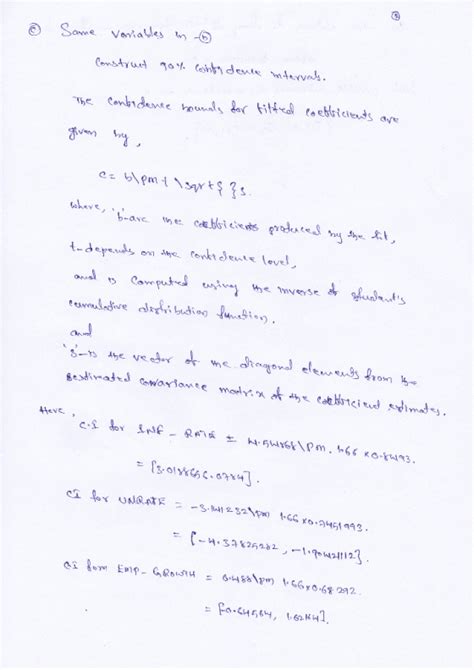 (3)
(c) Same variables in - (b)
Construct 90% confidence intervals.
The confidence bounds for fitted coefficients are
given by,
c= b\pm t \sqrt{ }s.
where, 'b'-are the coefficients produced by the fit,
t-depends on the confidence level,
and is computed using the inverse of student's
cumulative distribution function.
and
's'-is the vector of the diagonal elements from the
estimated covariance matrix of the coefficient estimates.
Here,
C.I for INF - RATE = \pm 1.66 x0.
=
CI for UNRATE = -3.141232\pm 1.66x0.7451993.
=
CI form EMP- GROWTH = 0.488\pm 1.66x0.68292.
=